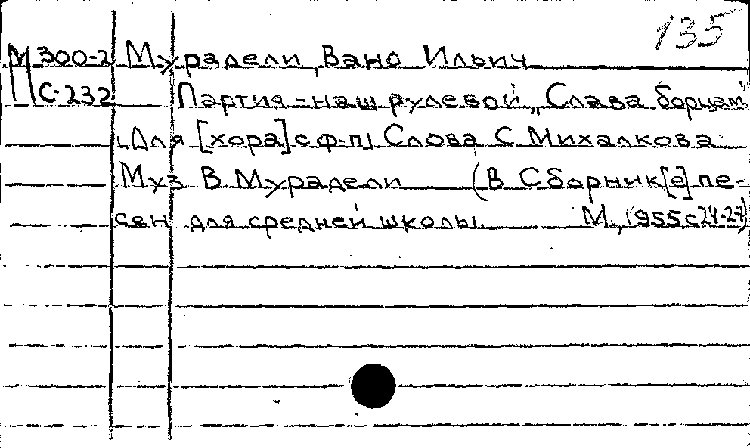 135
М 300-2 Мурадели, Вано Ильич
С-232 Партия - наш рулевой „Слава борцам"
(Для [хора] с ф-п) Слова С. Михалкова
Муз В. Мурадели (В Сборник[е] пе-
сен для средней школы М., 1955 с 24-27)